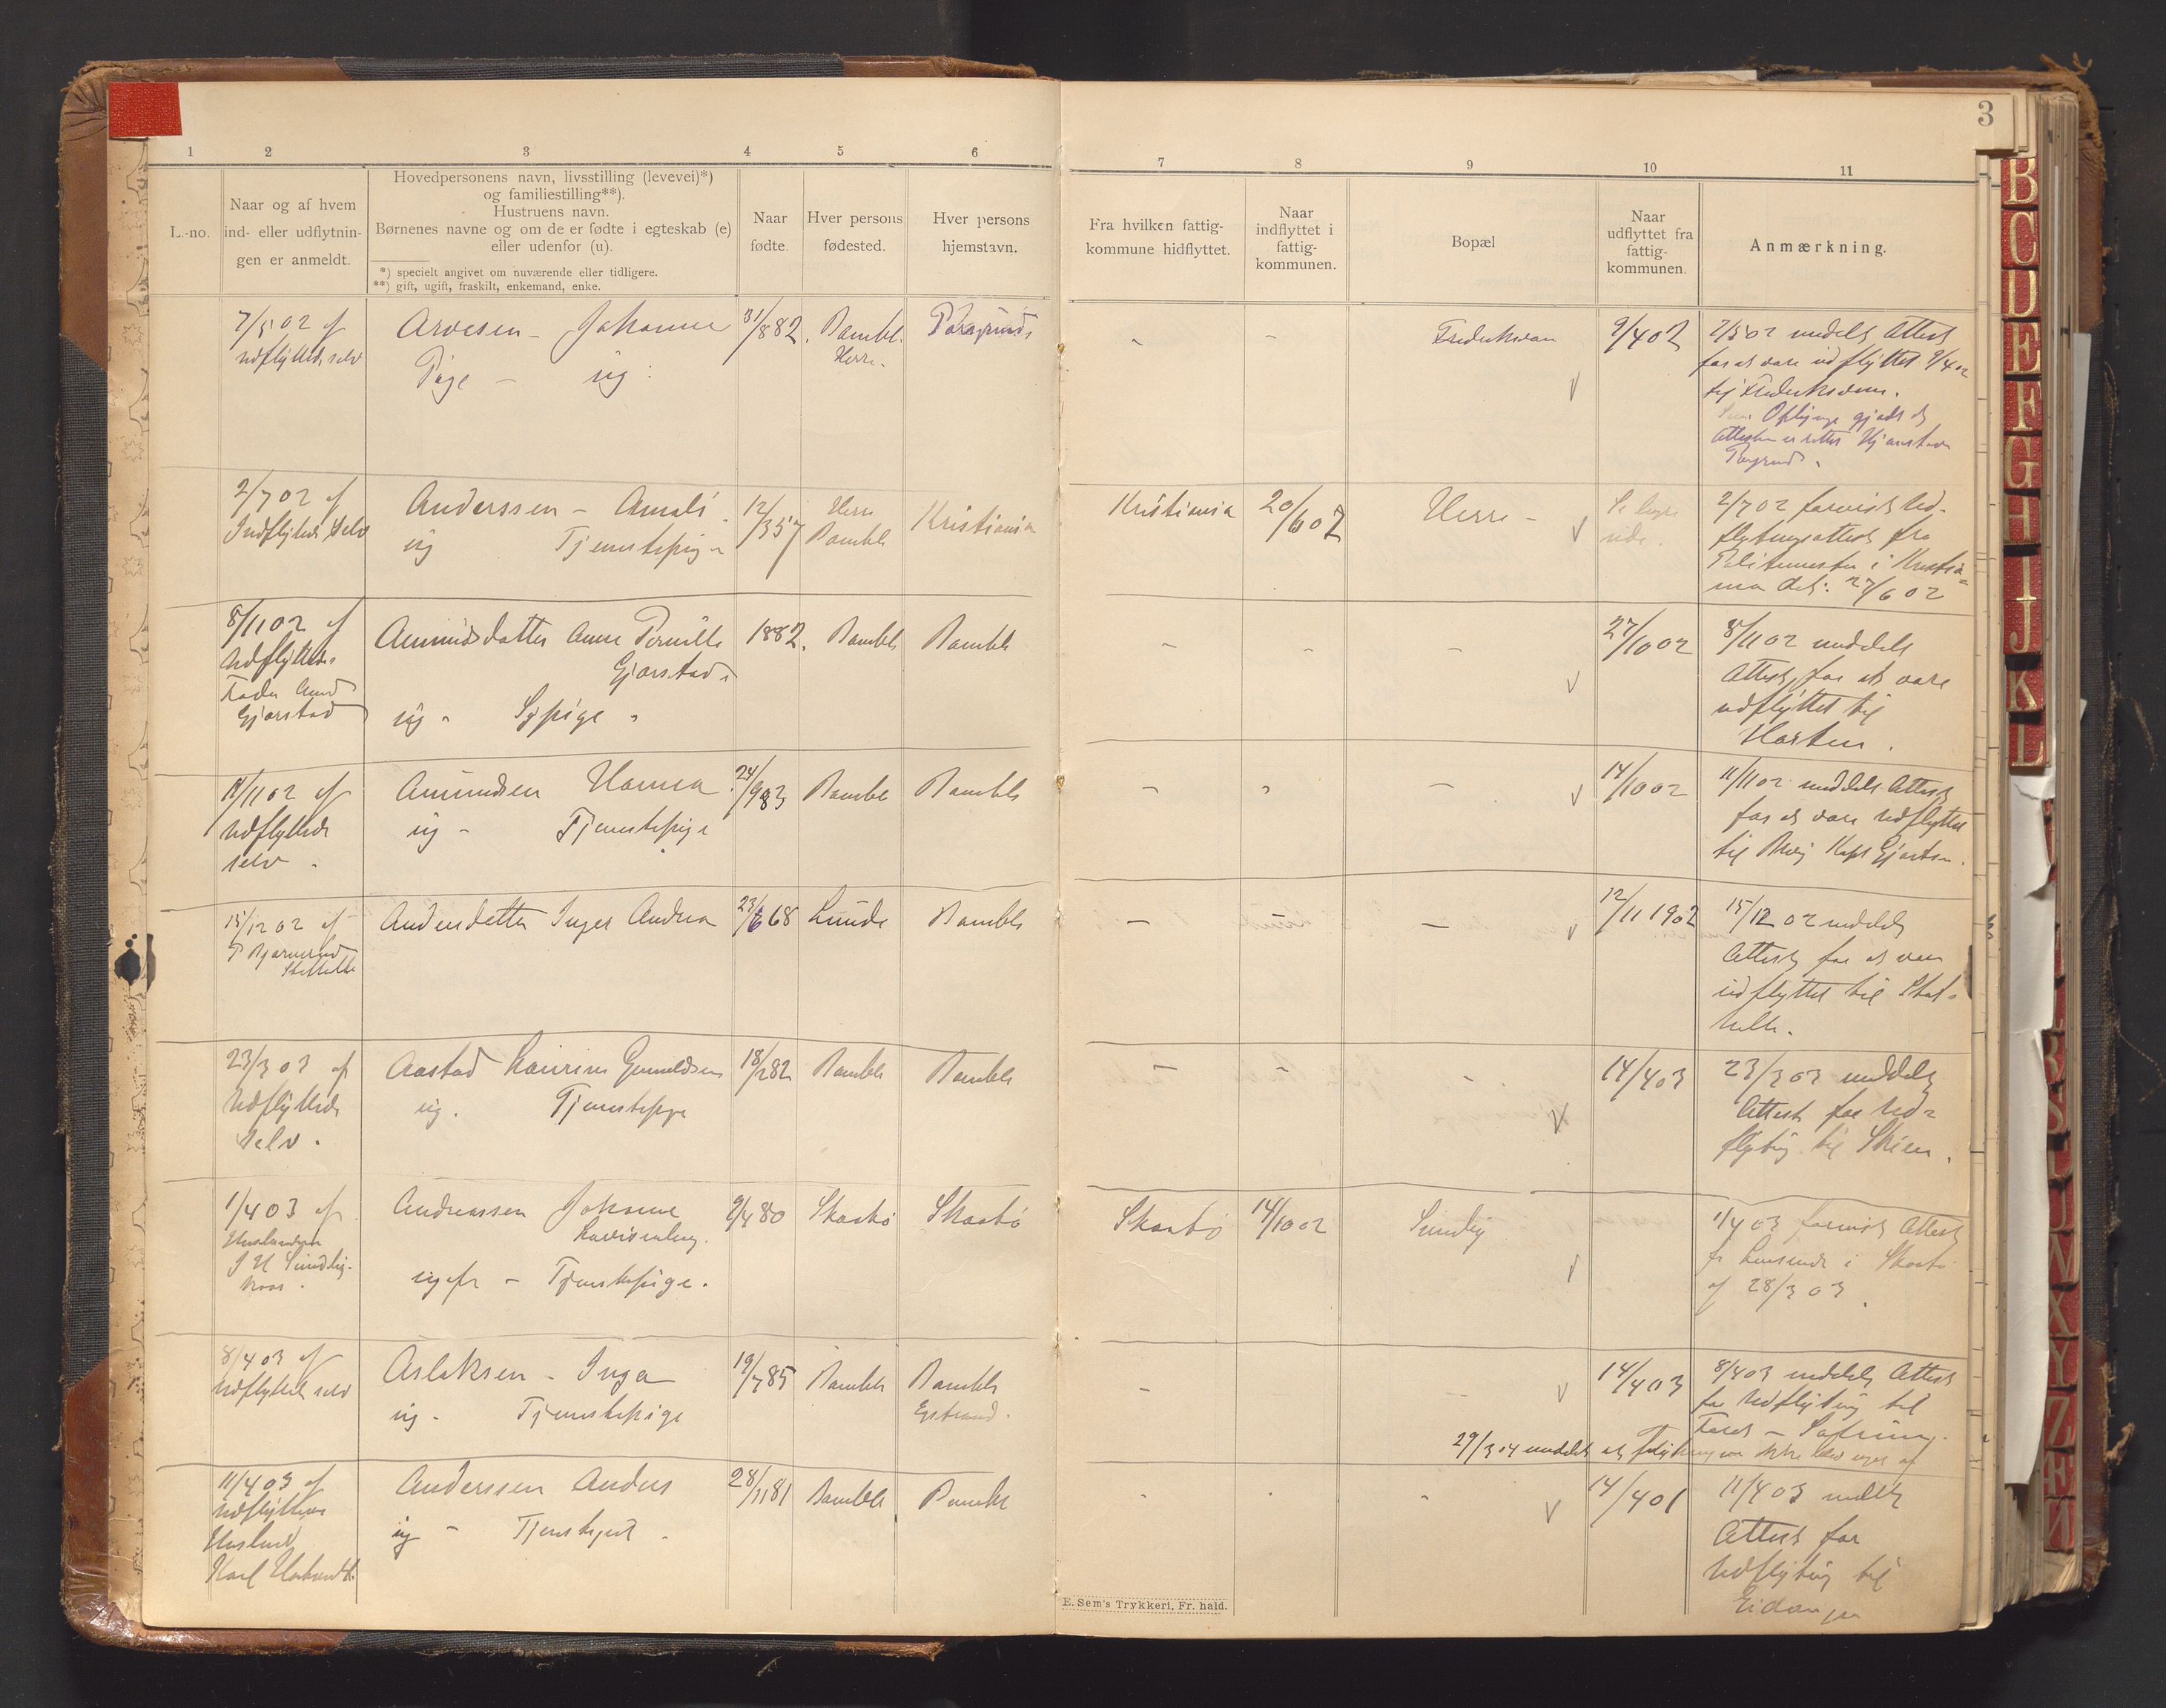 3
1 2 3 4 5 6 7 8 9 10 11
L.-no.
Naar og af hvem
ind- eller udflytnin-
gen er anmeldt.
Hovedpersonens navn, livsstilling (levevei)*)
og familiestilling**).
Hustruens navn.
Børnenes navne og om de er fødte i egteskab (e)
eller udenfor (u).
*) specielt angivet om nuværende eller tidligere.
**) gift, ugift, fraskilt, enkemand, enke.
Naar
fødte.
Hver persons
fødested.
Hver persons
hjemstavn.
Fra hvilken fattig-
kommune hidflyttet.
Naar
indflyttet i
fattig-
kommunen.
Bopæl
Naar
udflyttet fra
fattig-
kommunen.
Anmærkning.
7/5 02 af
udflyttede selv
Arvesen - Johanne
Pige - ug.
31/8 82.
Bamble.
Herre.
Porsgrund
- -
9/4 02
7/5 02 meddelt Attest
for at være udflyttet 9/4 02
til
2/7 02 af
Indflyttede selv
Anderssen - Amali
ug Tjenestepige
12/3 57
Herre
Bamble
Kristiania
Kristiania
20/6 02
Herre -
2/7 02 forevist Ud-
flytningsattest fra
Politimester i Kristia=
nia dat. 27/6 02
8/11 02 af
Udflyttedes
Fader
Gjerstad
Amundsdatter Anne Pernille
Gjerstad
ug - Sypige
1882.
Bamble
Bamble
- - -
27/10 02
8/11 02 meddelt
Attest for at være
udflyttet til
Horten.
11/11 02 af
Udflyttede
selv.
Amundsen Hanna
ug - Tjenestepige
24/9 83
Bamble
Bamble
- - -
14/10 02
11/11 02 meddelt Attest
for at være Udflyttet
til
15/12 02 af
Andersdatter Inger Andrea
23/6 68
Lunde
Bamble
- - -
12/11 1902
15/12 02 meddelt
Attest for at være
udflyttet til Stat-
helle.
23/3 03 af
Udflyttede
selv.
Aastad Laurine
ug. Tjenestepige
18/2 82
Bamble
Bamble
- - -
14/4 03
23/3 03 meddelt
Attest for Ud=
flytning til Skien.
1/4 03 af
Andreassen Johanne
ugift - Tjenestepige.
9/4 80
Skaatø
Skaatø
Skaatø
14/10 02
1/4 03 forevist Attest
fr Lensmd i Skaatø
af 28/3 03.
8/4 03 af
Udflyttede selv
Aslaksen - Inga
ug. Tjenestepige
19/7 85
Bamble
Bamble
- -
14/4 03
8/4 03 meddelt Attest
for Udflytning til
29/3 04 meddelt at
11/4 03 af
Udflytterens
Husbond
Karl
Anderssen Anders
ug - Tjenestegut.
28/11 81
Bamble
Bamble
- - -
14/4 01
11/4 03 meddelt
Attest for
Udflytning til
Eidanger
E. Sem's Trykkeri, Fr. hald.
B
C
D
E
F
G
H
I
J
K
L
X
Y
Z
Æ
Ø